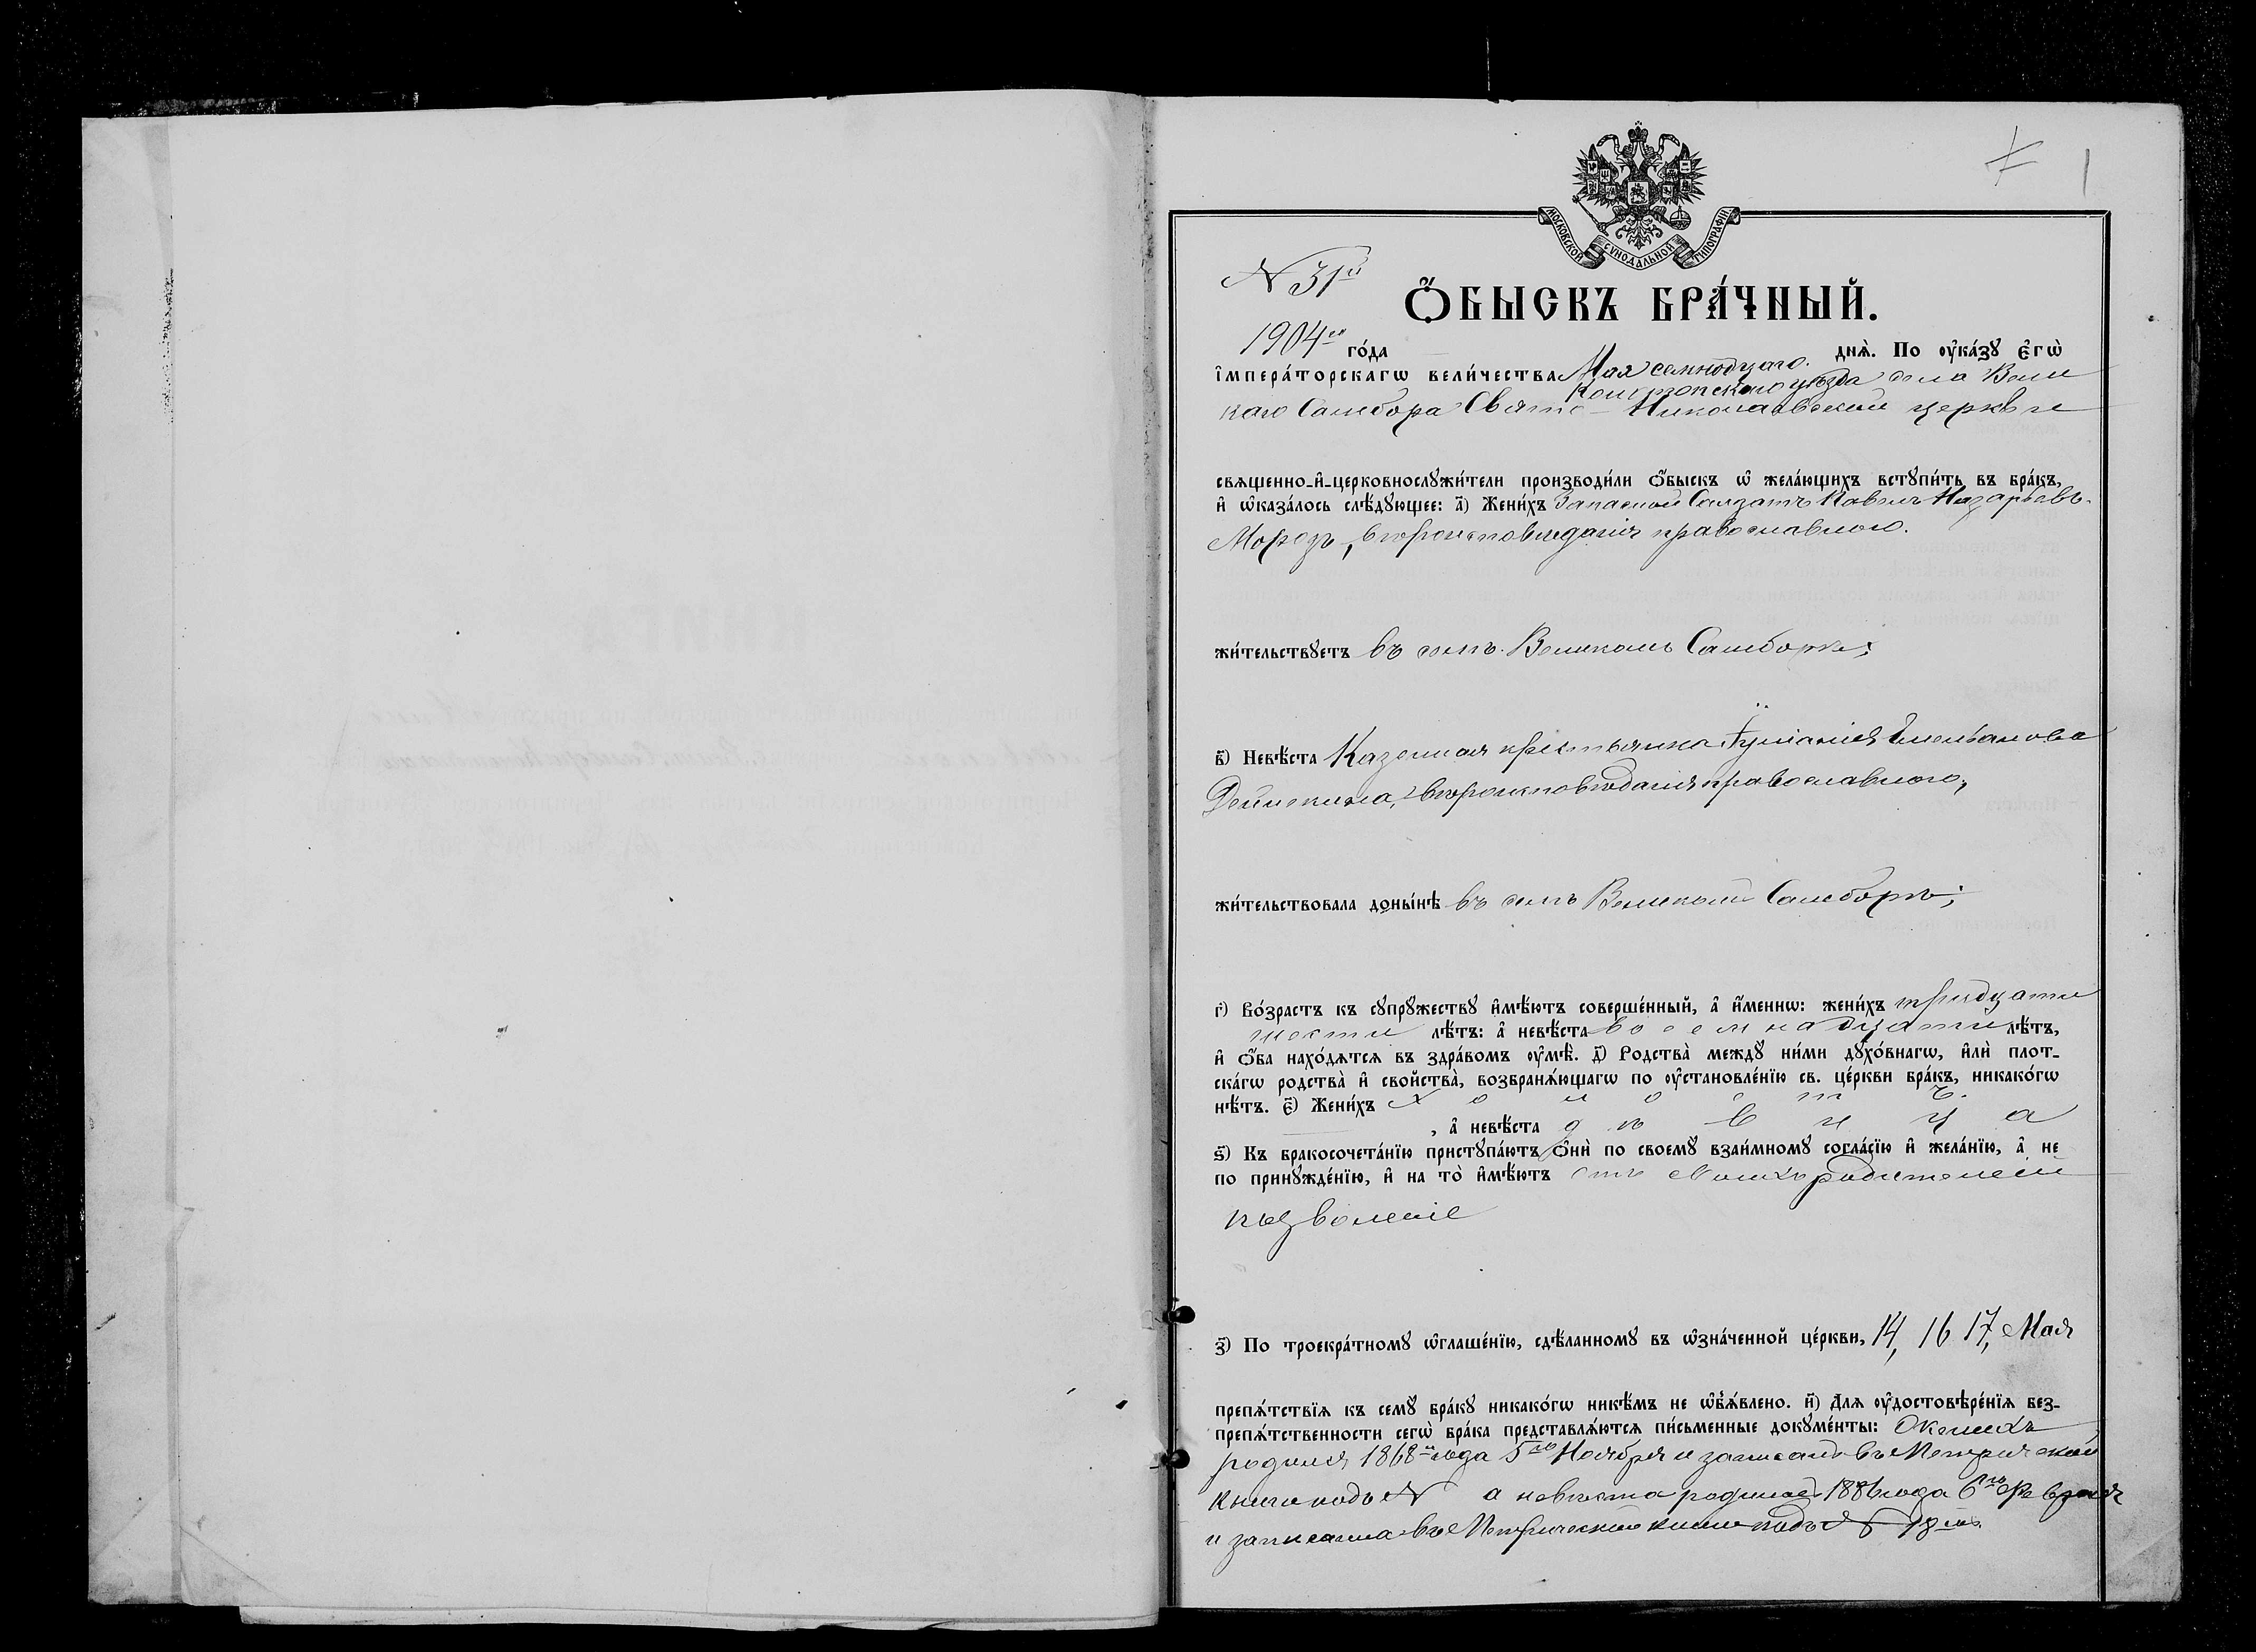 1
МОСКОВСКОЙ СѴНОДАЛЬНОЙ ТИПОГРАФІИ
N 31й
Ѻ҆БЫСКЪ БРА́ЧНЫЙ.
1904го го́да Мая семнадцаго. днѧ̀. По оу҆ка́зꙋ є҆гѡ̀
і҆мпера́торскагѡ вели́чества Конотопскаго уѣзда села Вели
каго Самбора Свято-Николаевской церкви
свѧщенно-и҆-церковнослꙋжи́тели производи́ли ѻ҆́быскъ ѡ҆ жела́ющихъ встꙋпи́ть въ бра́къ,
и҆ ѡ҆каза́лось слѣ́дꙋющее: а҃) Жени́хъ Запасной Салдатъ Павелъ Назарьевъ
Морозъ, вѣроисповѣданія православнаго.
жи́тельствꙋетъ въ селѣ Великомъ Самборѣ;
в҃) Невѣ́ста Казенная крестьянка Іуліанія Емельянова
Дейнекина, вѣроисповѣданія православнаго,
жи́тельствовала доны́нѣ въ селѣ Великомъ Самборѣ;
г҃) Во́зрастъ къ сꙋпрꙋ́жествꙋ и҆мѣ́ютъ соверше́нный, а҆ и҆́меннѡ: жени́хъ тридцати
шести лѣ́тъ: а҆ невѣ́ста восемнадцати лѣ́тъ,
и҆ ѻ҆́ба нахо́дѧтсѧ въ здра́вомъ оу҆мѣ̀. д҃) Родства̀ междꙋ ни́ми дꙋхо́внагѡ, и҆лѝ плот-
ска́гѡ родства̀ и҆ сво́йства̀, возбранѧ́ющагѡ по оу҆становле́нїю св. це́ркви бра́къ, никако́гѡ
нѣ́тъ. є҃) Жени́хъ холостъ.
, а҆ невѣ́ста дѣвица
ѕ҃) Къ бракосочета́нїю пристꙋпа́ютъ ѻ҆нѝ по своемꙋ̀ взаи́мномꙋ согла́сїю и҆ жела́нїю, а҆ не
по принꙋжде́нїю, и҆ на то̀ и҆мѣ́ютъ отъ своихъ родителей
позволеніе
з҃) По троекра́тномꙋ ѡ҆глаше́нїю, сдѣ́ланномꙋ въ ѡ҆зна́ченной це́ркви, 14, 16 17, Мая
препѧ́тствїѧ къ семꙋ̀ бра́кꙋ никако́гѡ никѣ́мъ не ѡ҆б̾ѧ́влено. и҃) Длѧ оу҆достовѣре́нїѧ без-
препѧ́тственности сегѡ̀ бра́ка представлѧ́ютсѧ пи́сьменные докꙋме́нты: Женихъ
родился 1868го года 5го Ноября и записанъ въ Метрической
книгѣ подъ N а невѣста родилась 1886 года 6го Февраля
и записанна въ Метрической книги подъ N 18мъ.